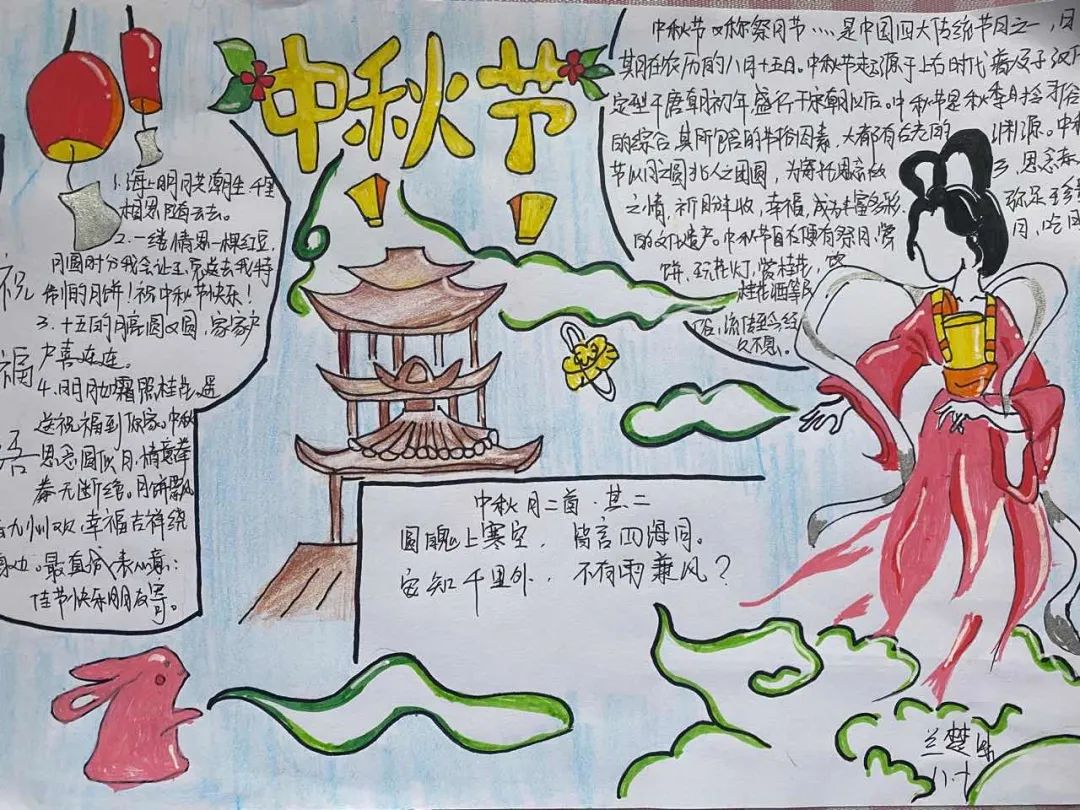 中秋节
祝
福
语
1.海上明月共潮生，千里
相思随云去。
2.一缕情思一棵红豆，
月圆时分我会让玉兔送去我特
制的月饼！祝中秋节快乐！
3.十五的月亮圆又圆，家家户
户喜连连。
4.明月如霜照桂花，遥
送祝福到你家。中秋
思念圆似月，情意牵
牵无断绝。月饼飘风
九州欢，幸福吉祥绕
身边。最真诚表心意：
佳节快乐朋友寄。
中秋节又称祭月节……是中国四大传统节日之一，日
其日在农历的八月十五日。中秋节起源于上古时代，
定型于唐朝初年，盛行于宋朝以后。中秋节是秋季
的综合，其所包含的节俗因素，大都有古老的
渊源。中秋
节以月之圆兆人之团圆，为寄托思念故
3.思念
之情，祈盼丰收，幸福，成为丰富多彩
的文化遗产。中秋节自古便有祭月，赏
月，吃月
饼，玩花灯，赏桂花，饮
桂花酒等民
俗，流传至今经
久不息。
中秋月二首·其二
圆魄上寒空，皆言四海同。
安知千里外，不有雨兼风？
兰楚
八.十